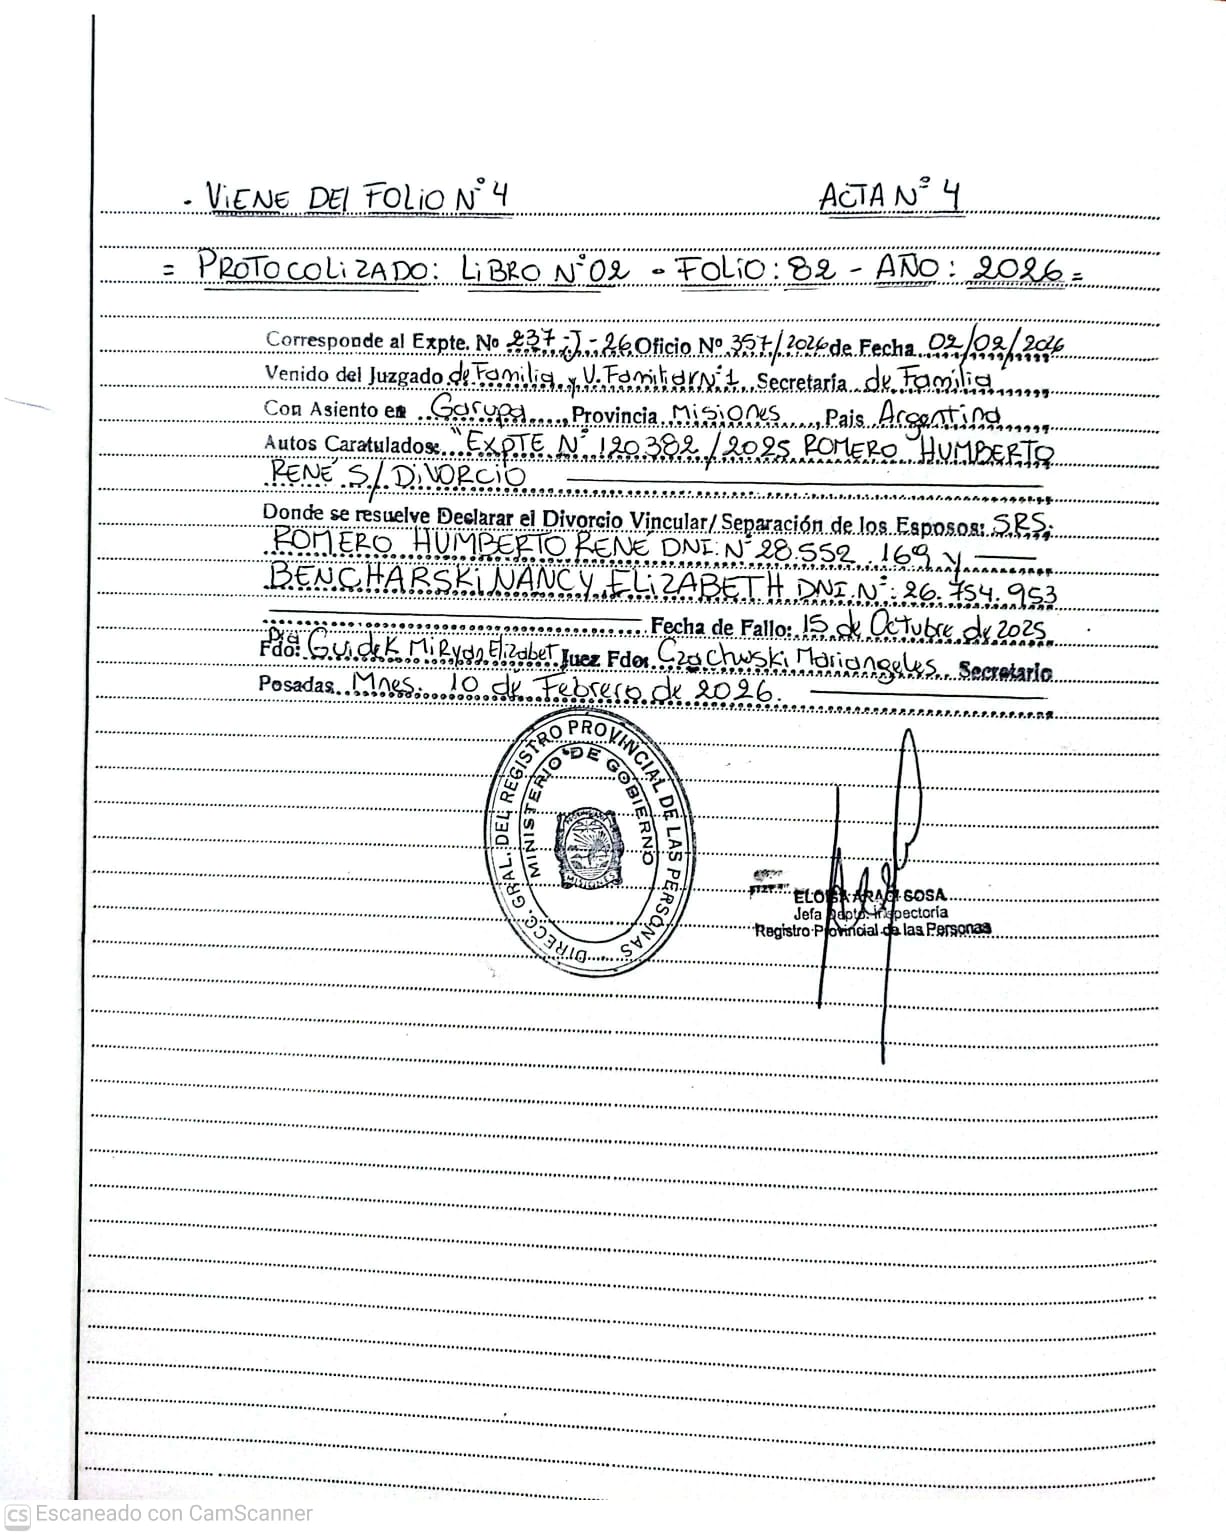 . ViENE DEl FOLiO N° 4 ACTA N° 4
= PROTOCOLiZADO: LiBRO N° 02 - FOLiO: 82 - AÑO: 2026 =
Corresponde al Expte. No 237-J-26 Oficio Nº 357/2026 de Fecha 02/02/2026
Venido del Juzgado de Familia y V. Familiar N°1 Secretaría de Familia
Con Asiento en Garupa, Provincia Misiones, Pais Argentina
Autos Caratulados: "EXPTE N° 120382/2025 ROMERO HUMBERTO
RENÉ S/ DiVORCiO
Donde se resuelve Declarar el Divorcio Vincular/Separación de los Esposos: SRS.
ROMERO HUMBERTO RENÉ DNI: N° 28.552.169 y
BENCHARSKi NANCY ELiZABETH DNI. N°: 26.754.953
Fecha de Fallo: 15 de Octubre de 2025
Fdo: Dra Guidek Miryan Elizabet Juez Fdo: Czachuski Mariangeles Secretario
Posadas Mnes. 10 de Febrero de 2026.
DIRECC. GRAL. DEL REGISTRO PROVINCIAL DE LAS PERSONAS
MINISTERIO DE GOBIERNO
MISIONES
ELOISA ARACI SOSA
Jefa Depto. Inspectoría
Registro Provincial de las Personas
CS Escaneado con CamScanner